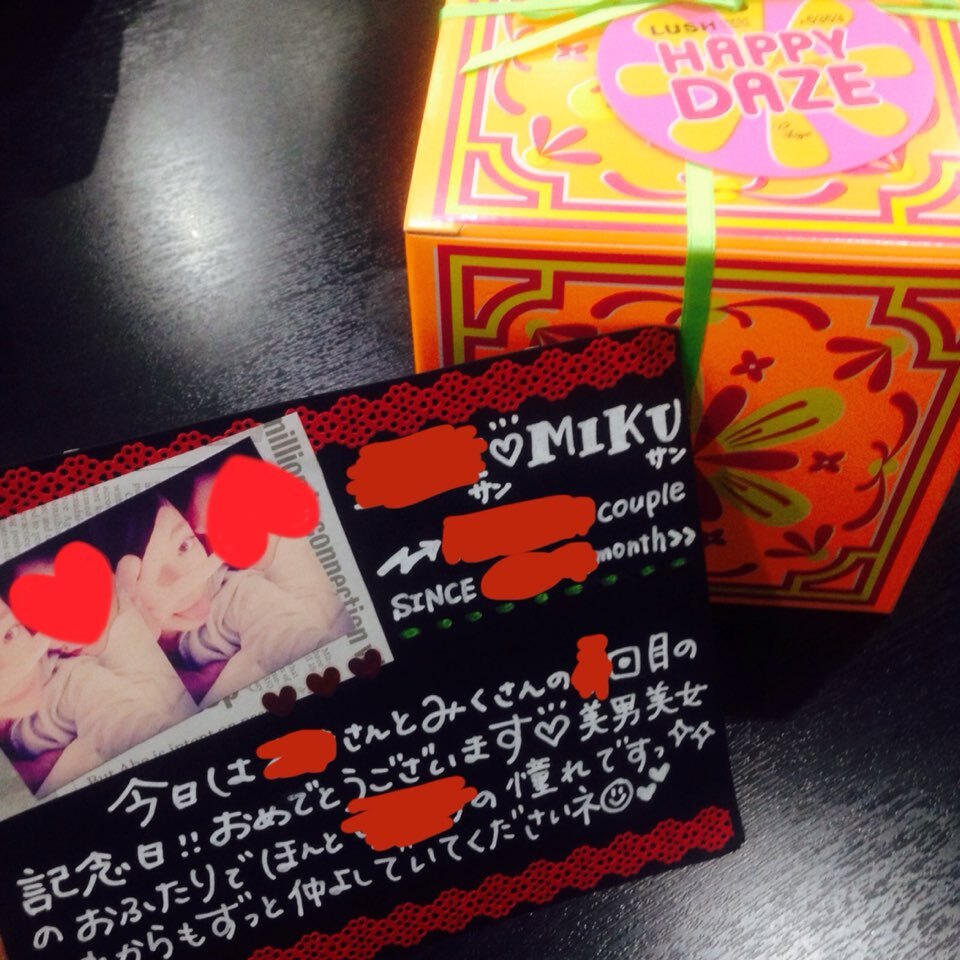 LUSH
HAPPY
DAZE
♡MIKU
サン サン
couple
SINCE month>>
million
connection
今日は さんとみくさんの 回目の
記念日!!おめでとうございます♡美男美女
のおふたりでほんと の憧れですっ☆☆
からもずっと仲よしでいてくださいネ☺♥